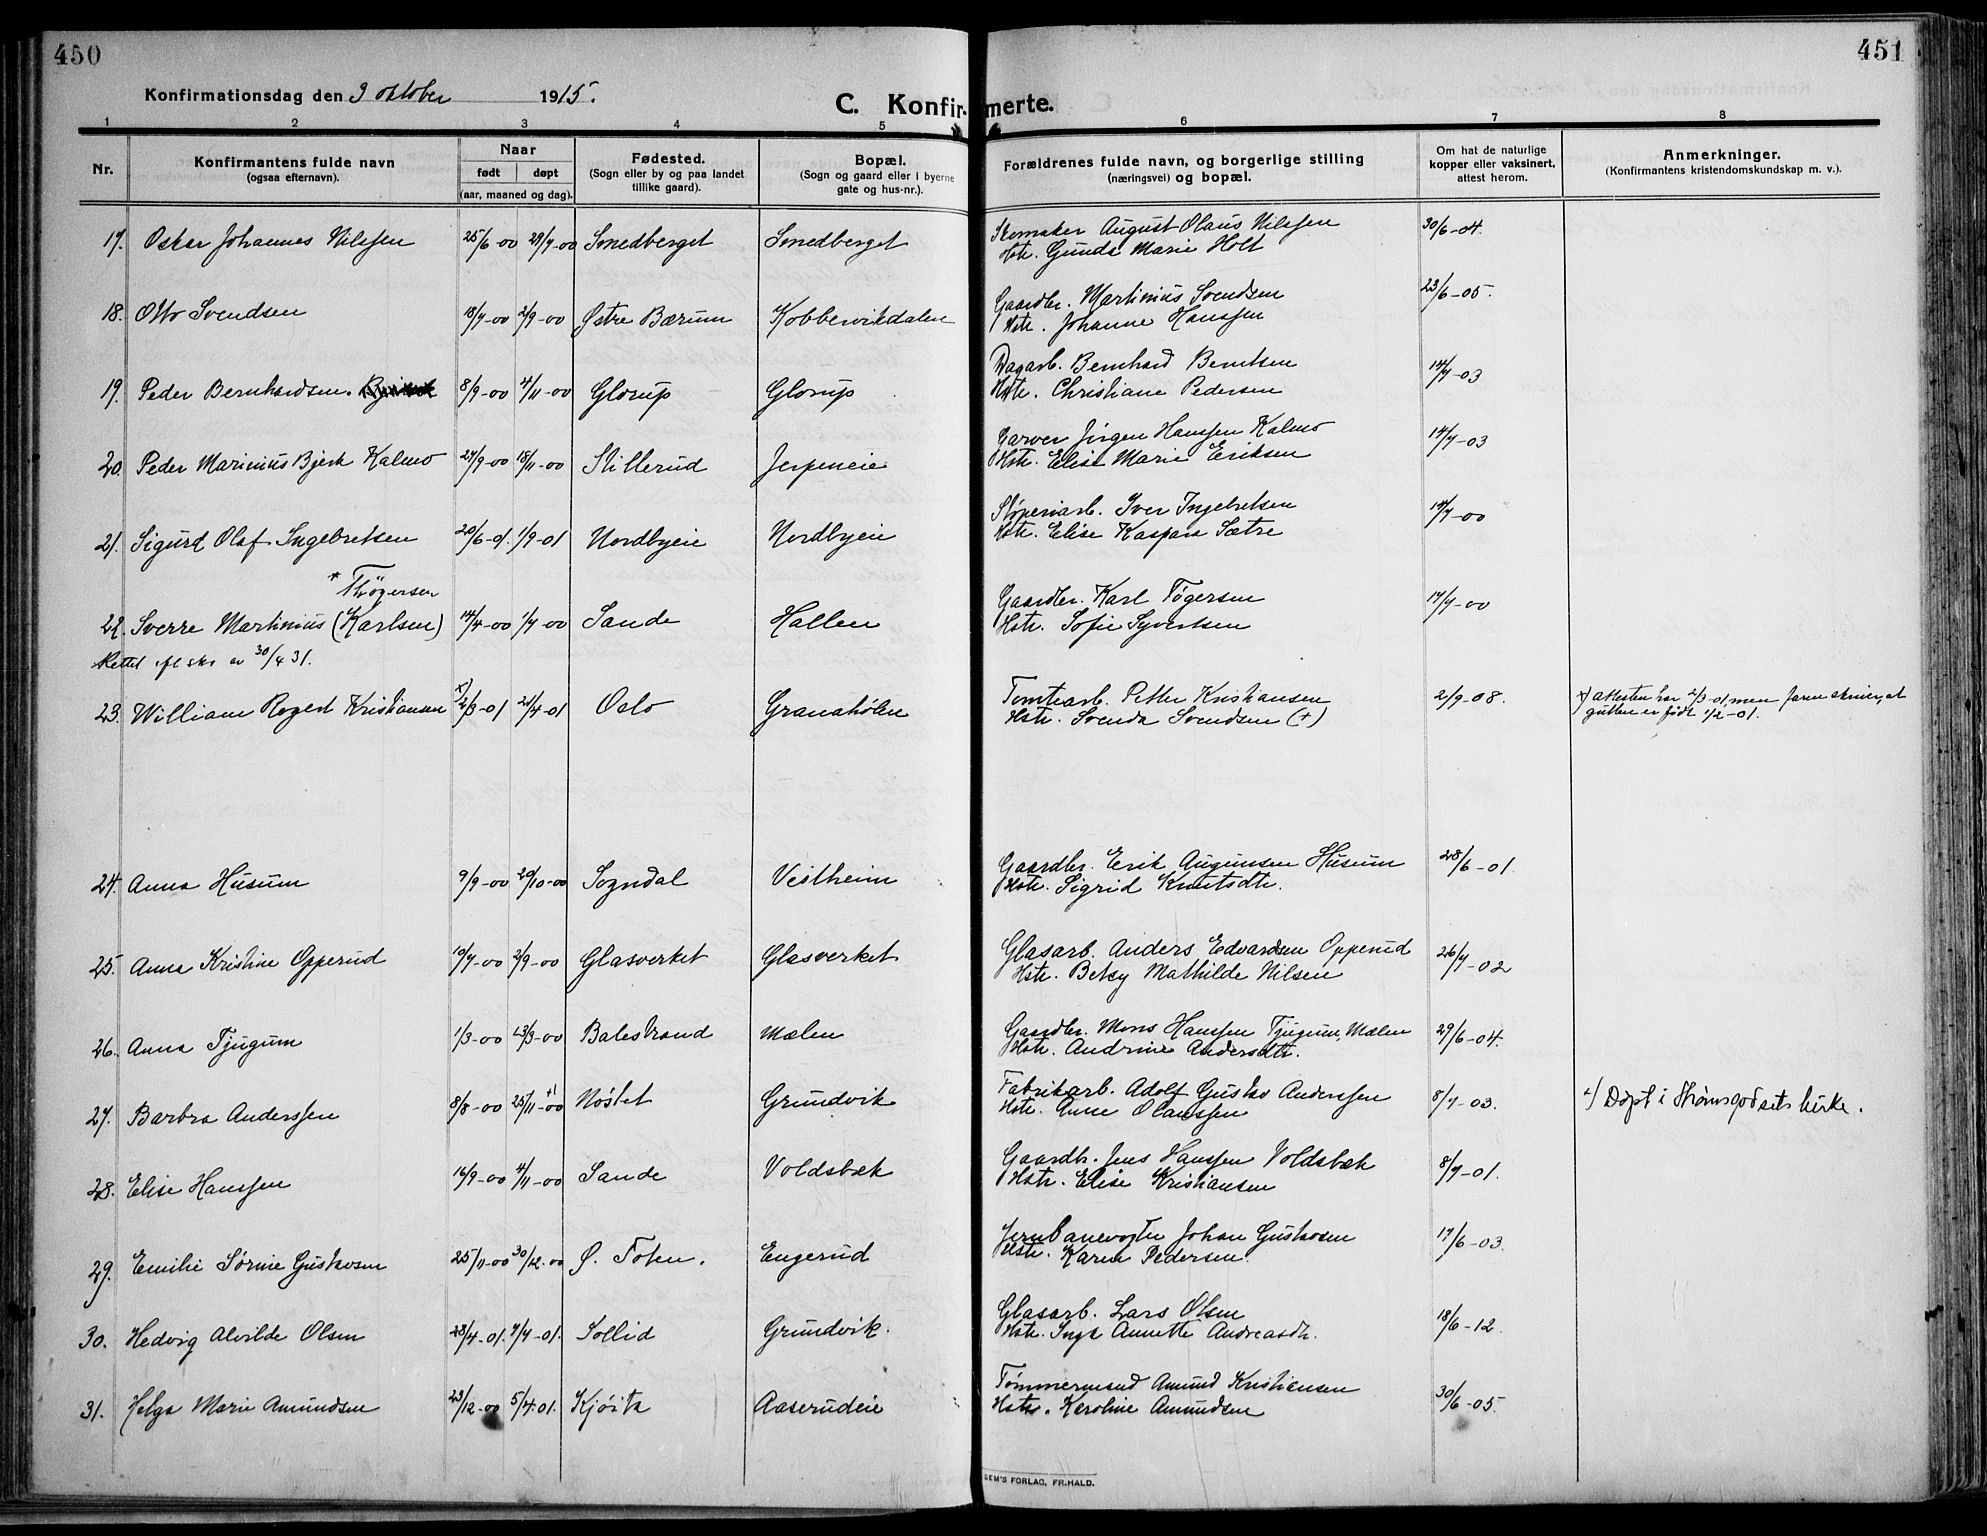 450
451
Konfirmationsdag den 3 oktober 1915.
C. Konfirmerte.
1 2 3 4 5 6 7 8
Nr.
Konfirmantens fulde navn
(ogsaa efternavn).
Naar
født døpt
(aar, maaned og dag).
Fødested.
(Sogn eller by og paa landet
tillike gaard).
Bopæl.
(Sogn og gaard eller i byerne
gate og hus-nr.).
Forældrenes fulde navn, og borgerlige stilling
(næringsvei) og bopæl.
Om hat de naturlige
kopper eller vaksinert,
attest herom.
Anmerkninger.
(Konfirmantens kristendomskundskap m. v.).
17. Oskar Johannes Nilssen 25/6-00 29/7-00 Smedberget Smedberget Skomaker August Olaus Nilssen 30/6-04.
Hstr. Gunda Marie Holt
18. Otto Svendsen 18/7-00 2/9-00 Østre Bærum Kobbervikdalen Gaardbr. Martinius Svendsen 23/6-05.
Hstr. Johanne Hanssen
19. Peder Bernhardsen. 8/9-00 4/11-00 Glorup Glorup Dagarb. Bernhard Berntsen 14/7-03
Hstr. Christiane Pedersen
20. Peder Marinius Bjerk Kalmo 24/9-00 18/11-00 Stillerud Jerpeneie Garver Jørgen Hanssen Kalmo 14/7-03
Hstr. Elise Marie Eriksen
21. Sigurd Olaf Ingebretsen 20/6-01. 1/9-01 Nordbyeie Nordbyeie Støperiarb. Iver Ingebretsen 14/7-00
Hstr. Elise Kaspara Sætre
* Thøgersen
22. Sverre Martinius (Karlsen) 14/4-00 1/7-00 Sande Hallen Gaardbr. Karl Tøgersen 17/7-00
Hstr. Sofie Syvertsen
Rettet efl skr av 30/4 31.
23. William Roger Kristiansen x) 2/3-01 21/4-01 Oslo Granahølen Tomtearb. Petter Kristiansen 2/9-08. x) attesten har 2/3-01, men faren skriver, at
Hstr. Svenda Svendsen (+) gutten er født 1/2-01.
24. Anna Husum 9/9-00 20/10-00 Sogndal Vestheim Gaardbr. Erik Augunsen Husum 28/6-01.
Hstr. Sigrid Knutsdtr.
25. Anna Kristine Opperud 10/7-00 2/9-00 Glasverket Glasverket Glasarb. Anders Edvardsen Opperud 26/7-02
Hstr. Betsy Mathilde Nilsen
26. Anna Tjugum 1/3-00 23/3-00 Balestrand Mælen Gaardbr. Mons Hanssen Tjugum, Mælen 29/6-04.
Hstr. Andrine Andersdtr.
27. Barbra Anderssen 8/8-00 25/11-00 +) Nøstet Grundvik Fabrikarb. Adolf Gustav Anderssen 8/7-03. +) Døpt i Strømsgodsets kirke.
Hstr. Anne Olaussen
28. Elise Hanssen 16/9-00 4/11-00 Sande Voldsbæk Gaardb. Jens Hanssen Voldsbæk 8/7-01.
Hstr. Elise Kristiansen
29. Emilie Sørine Gustavsen 25/11-00 30/12-00 Ø. Toten. Engerud Jernbanevogter Johan Gustavsen 17/6-03.
Hstr. Karen Pedersen.
30. Hedvig Alvilde Olsen 28/4-01. 7/7-01. Sollid Grundvik. Glasarb. Lars Olsen 18/6-12.
Hstr. Inga Annette Andreasdtr.
31. Helga Marie Amundsen 23/12-00 5/4-01. Kjøsta Aaserudeie Tømmermand Amund Kristiansen 30/6-05.
Hstr. Karoline Amundsen
SEM'S FORLAG, FR.HALD.